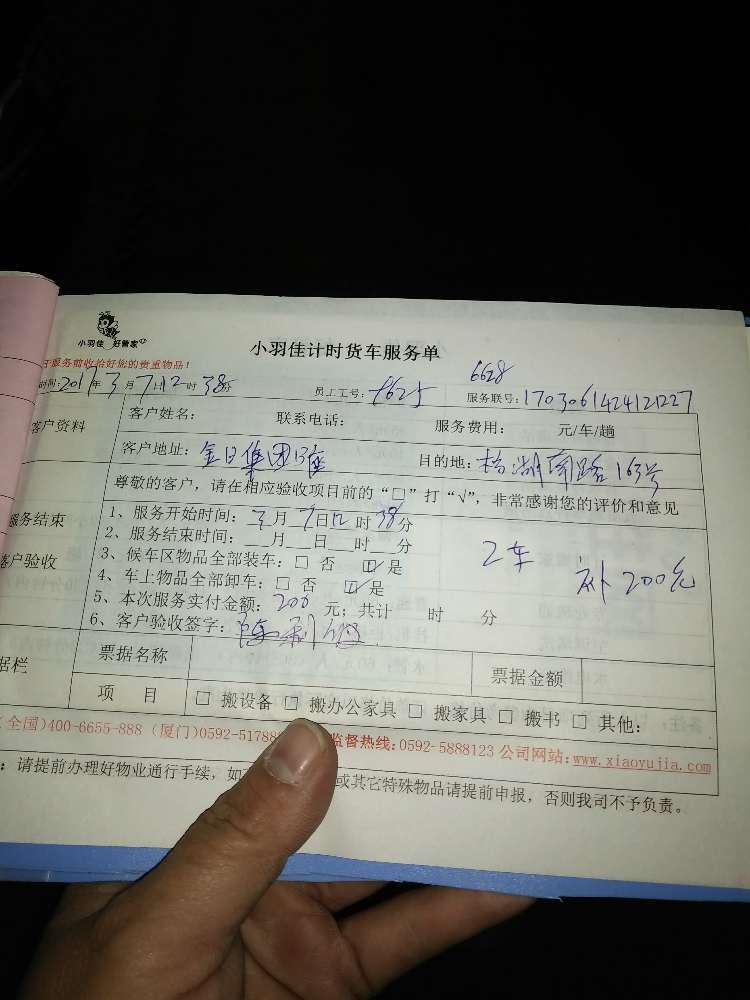 小羽佳 好管家
小羽佳计时货车服务单
于服务前收拾好您的贵重物品！
6628
时间:2017年3月7日12时38分 员工工号: 8625 服务联号:1703061424121227
客户资料 客户姓名: 联系电话: 服务费用: 元/车/趟
客户地址: 金日集团B座 目的地: 杨湖南路163号
尊敬的客户，请在相应验收项目前的“□”打“√”，非常感谢您的评价和意见
服务结束
客户验收
1、服务开始时间: 3月7日12时38分
2、服务结束时间: __月__日__时__分
3、候车区物品全部装车: □ 否 ☑是
4、车上物品全部卸车: □ 否 ☑是
2车 补200元
5、本次服务实付金额: 200 元; 共计 时 分
6、客户验收签字:
据栏 票据名称 票据金额
项 目 □ 搬设备 □ 搬办公家具 □ 搬家具 □ 搬书 □ 其他:
(全国)400-6655-888 (厦门)0592-51788 监督热线:0592-5888123 公司网站:www.xiaoyujia.com
: 请提前办理好物业通行手续，如 或其它特殊物品请提前申报，否则我司不予负责。